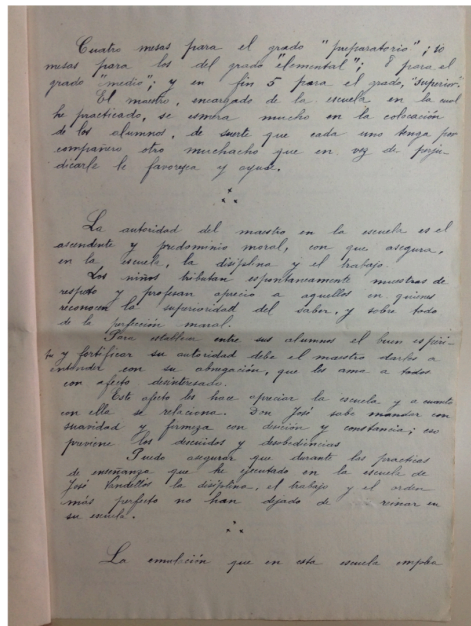 Cuatro mesas para el grado "preparatorio"; 10
mesas para los del grado "elemental"; 8 para el
grado "medio"; y en fin 5 para el grado, "superior".
El maestro, encargado de la escuela en la cual
he practicado, se esmera mucho en la colocación
de los alumnos, de suerte que cada uno tenga por
compañero otro muchacho que en vez de perju-
dicarle le favorezca y ayude.
La autoridad del maestro en la escuela es el
ascendente y predominio moral, con que asegura,
en la escuela, la disciplina y el trabajo.
Los niños tributan espontaneamente muestras de
respeto y profesan aprecio a aquellos en quienes
reconocen la superioridad del saber, y sobre todo
de la perfección moral.
Para establecer entre sus alumnos el buen espíri-
tu y fortificar su autoridad debe el maestro darles a
entender con su abnegación, que los ama a todos
con afecto desinteresado.
Este afecto les hace apreciar la escuela y a cuanto
con ella se relaciona. Don José sabe mandar con
suavidad y firmeza con decisión y constancia; eso
previene los descuidos y desobediencias
Puedo asegurar que durante las practicas
de enseñanza que he ejecutado en la escuela de
José Vandellós la disciplina, el trabajo y el orden
más perfecto no han dejado de reinar en
su escuela.
La emulación que en esta escuela emplea